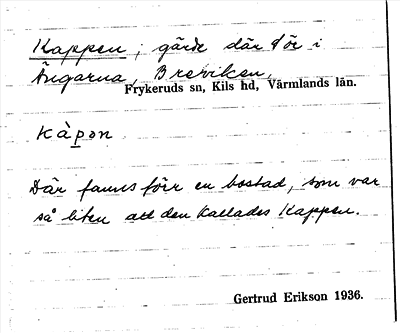 Kappen, gärde där för i
Ängarna, Breviken,
Frykeruds sn, Kils hd, Värmlands län.
kàpən
Där fanns förr en bostad, som var
så liten att den kallades Kappen.
Gertrud Erikson 1936.